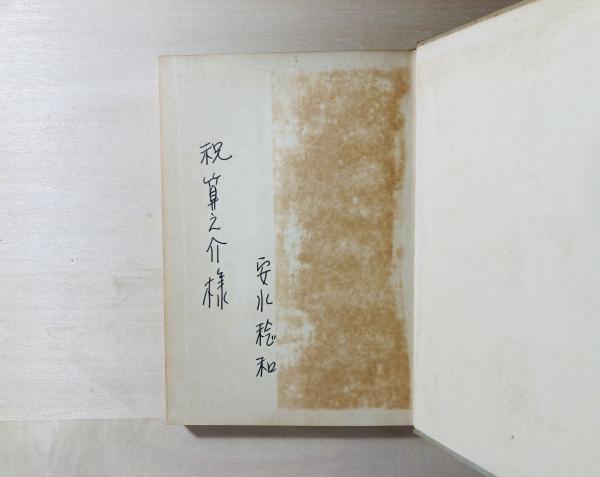 祝算之介様
安水稔和